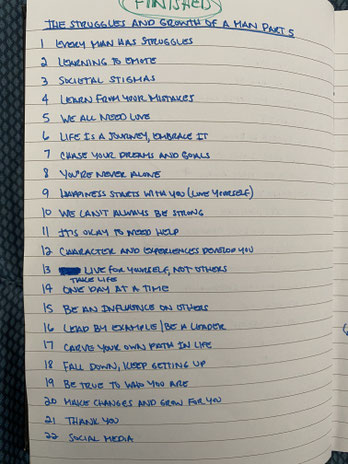 FINISHED
THE STRUGGLES AND GROWTH OF A MAN PART 5
1 EVERY MAN HAS STRUGGLES
2 LEARNING TO EMOTE
3 SOCIETAL STIGMAS
4 LEARN FROM YOUR MISTAKES
5 WE ALL NEED LOVE
6 LIFE IS A JOURNEY, EMBRACE IT
7 CHASE YOUR DREAMS AND GOALS
8 YOU'RE NEVER ALONE
9 HAPPINESS STARTS WITH YOU (LOVE YOURSELF)
10 WE CAN'T ALWAYS BE STRONG
11 IT'S OKAY TO NEED HELP
12 CHARACTER AND EXPERIENCES DEVELOP YOU
13 LIVE FOR YOURSELF, NOT OTHERS
TAKE LIFE
14 ONE DAY AT A TIME
15 BE AN INFLUENCE ON OTHERS
16 LEAD BY EXAMPLE / BE A LEADER
17 CARVE YOUR OWN PATH IN LIFE
18 FALL DOWN, KEEP GETTING UP
19 BE TRUE TO WHO YOU ARE
20 MAKE CHANGES AND GROW FOR YOU
21 THANK YOU
22 SOCIAL MEDIA